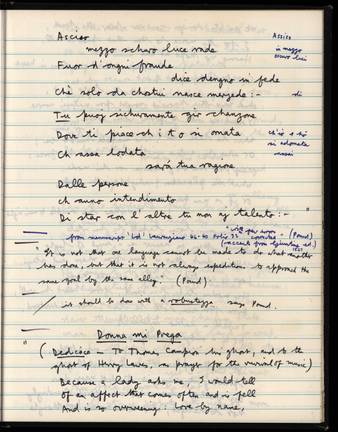 Asciso
mezzo schuro luce rade
Fuor d'ongni fraude
dice dengno in fede
Chè solo da chostui nasce merzede:-
Tu puoj sichuramente gir chanzone
Dove ti piace ch i t o si ornata
Ch assa lodata
sarà tua ragione
Dalle persone
ch anno intendimento
Di star con l'altre tu non aj talento:-"
Assiso
in mezzo
scuro luci
di
ch'io t hò
si adornata
assai
from manuscript
(Pound)
(- accents from Egiunting ed.)
"It is not that one language cannot be made to do what another
has done, but that it is not always expeditious to approach the
same goal by the same alley." (Pound).
it should be done with a robustezza says Pound.
Donna mi Prega
(Dedicace - To Thomas Campion his ghost, and to the
ghost of Henry Lawes, as prayer for the revival of music)
Because a lady asks me, I would tell
Of an affect that comes often and is fell
And is so overweening: Love by name,